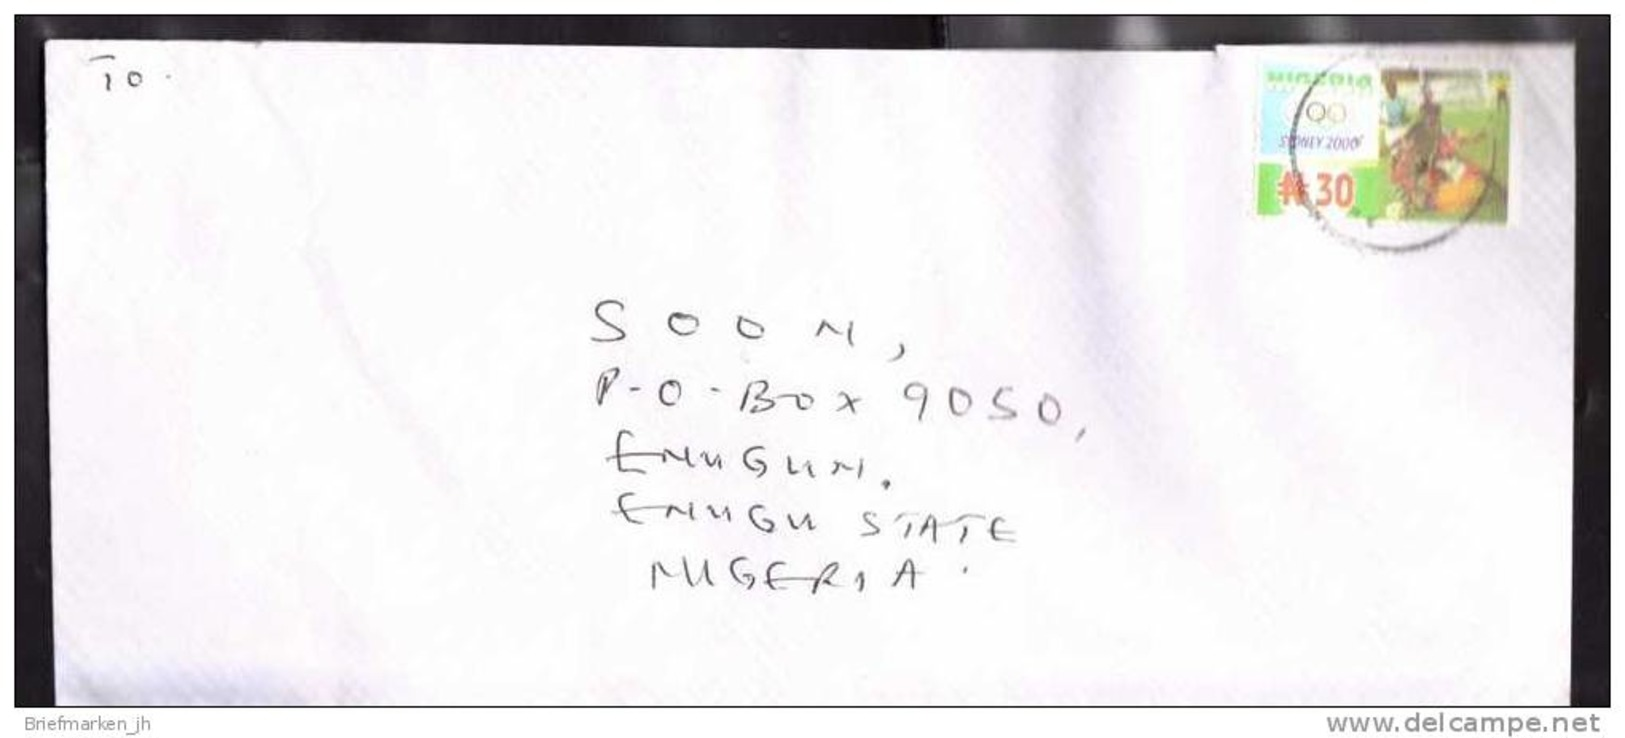 To.
NIGERIA
SYDNEY 2000
₦30
SOON,
P-O-Box 9050,
ENUGUN.
ENUGU STATE
NIGERIA.
Briefmarken_jh
www.delcampe.net